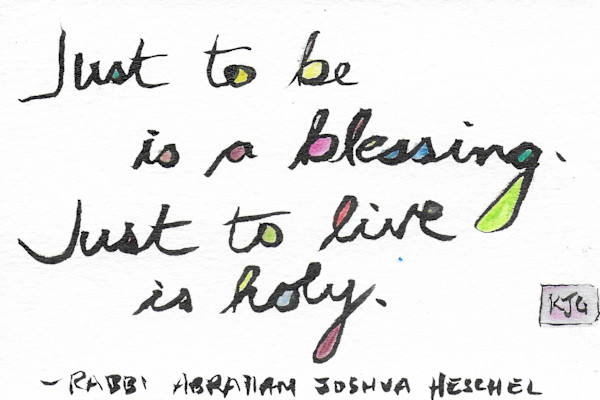 Just to be
is a blessing.
Just to live
is holy.
KJG
- RABBI ABRAHAM JOSHUA HESCHEL